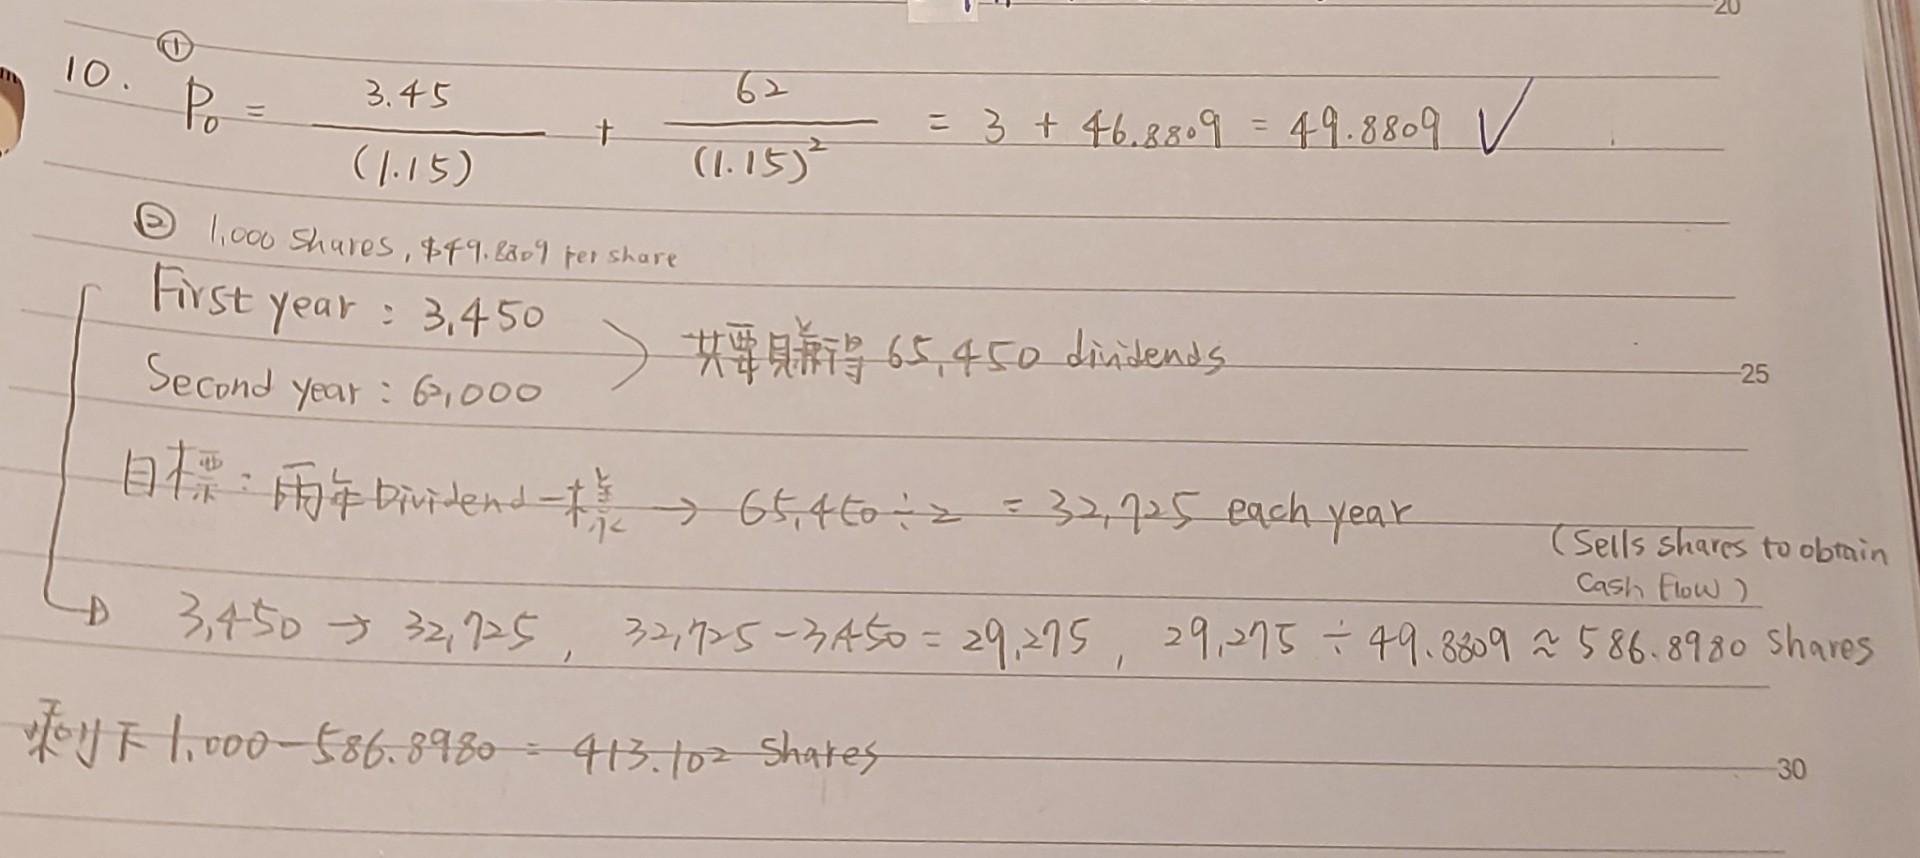 20
①
10. P₀ = 3.45 / (1.15) + 62 / (1.15)² = 3 + 46.8809 = 49.8809 ✓
② 1,000 shares, $49.8809 per share
First year : 3,450
共要賺得 65,450 dividends
Second year : 62,000
25
目標 : 兩年 Dividend 一樣 → 65,450 ÷ 2 = 32,725 each year
(Sells shares to obtain
Cash Flow)
3,450 → 32,725, 32,725 - 3,450 = 29,275, 29,275 ÷ 49.8809 ≈ 586.8980 shares
剩下 1,000 - 586.8980 = 413.102 shares
30